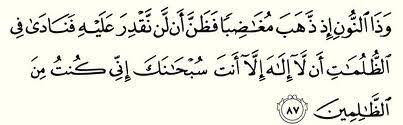 وَذَا ٱلنُّونِ إِذ ذَّهَبَ مُغَٰضِبًا فَظَنَّ أَن لَّن نَّقْدِرَ عَلَيْهِ فَنَادَىٰ فِى
ٱلظُّلُمَٰتِ أَن لَّآ إِلَٰهَ إِلَّآ أَنتَ سُبْحَٰنَكَ إِنِّى كُنتُ مِنَ
ٱلظَّٰلِمِينَ ٨٧